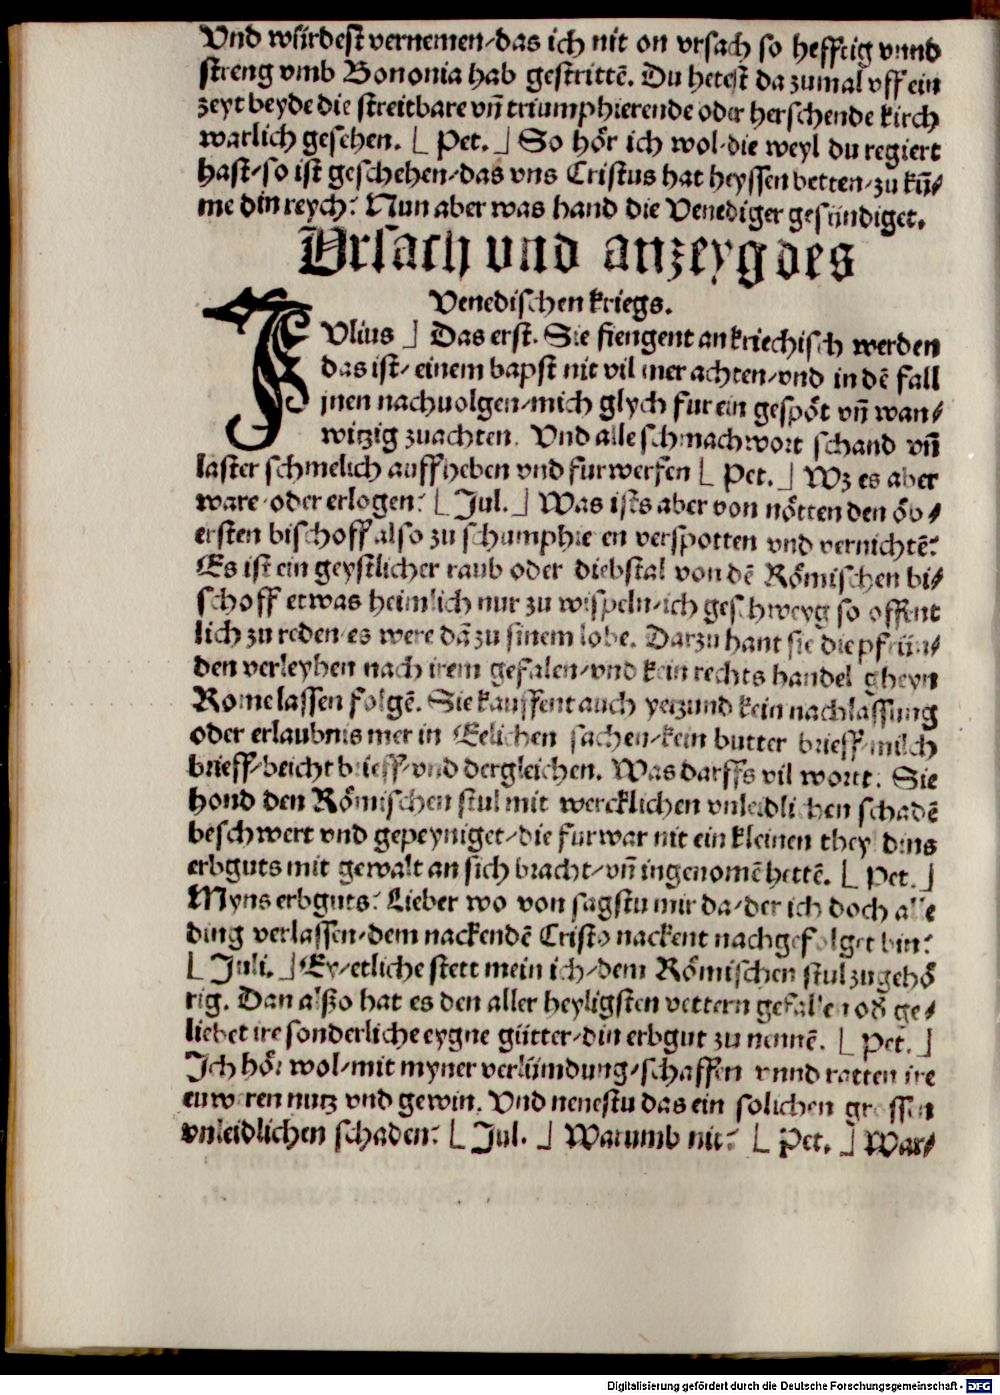 Vnd würdest vernemen/das ich nit on vrsach so hefftig vnnd
streng vmb Bononia hab gestrittē. Du hetest da zumal vff ein
zeyt beyde die streitbare vn̄ triumphierende oder herschende kirch
warlich gesehen. [ Pet. ] So hör ich wol/die weyl du regiert
hast/so ist geschehen/das vns Cristus hat heyssen betten/zu kū/
me din reych: Nun aber was hand die Venediger gesündiget.
Vrsach vnd anzeyg des
Venedischen kriegs.
IVlius ] Das erst. Sie fiengent an kriechisch werden
das ist/ einem bapst nit vil mer achten/vnd in dē fall
jnen nachuolgen/mich glych fur ein gespöt vn̄ wan/
witzig zuachten. Vnd alle schmachwort schand vn̄
laster schmelich auffheben vnd furwerfen [ Pet. ] Wz es aber
ware/oder erlogen: [ Jul. ] Was ists aber von nötten den öb/
ersten bischoff also zu schumphieren verspotten vnd vernichtē:
Es ist ein geystlicher raub oder diebstal von dē Römischen bi/
schoff etwas heimlich nur zu wispeln/ich geschweyg so offent
lich zu reden/es were dā zu sinem lobe. Darzu hant sie die pfrün/
den verleyhen nach irem gefalen/vnd kein rechts handel gheyn
Rome lassen folgē. Sie kauffent auch yetzund kein nachlassung
oder erlaubnis mer in Eelichen sachen/kein butter brieff/milch
brieff/beicht brieff/vnd dergleichen. Was darffs vil wortt: Sie
hond den Römischen stul mit wercklichen vnleidlichen schadē
beschwert vnd gepeyniget/die furwar nit ein kleinen they dins
erbguts mit gewalt an sich bracht/vn̄ ingenomē hettē. [ Pet. ]
Myns erbguts: Lieber wo von sagstu mir da/der ich doch alle
ding verlassen/dem nackendē Cristo nackent nachgefolget bin:
[ Juli. ] Ey/etliche stett mein ich/dem Römischen stul zugehö
rig. Dan alßo hat es den aller heyligsten vettern gefallen od̄ ge/
liebet ire sonderliche eygne gütter/din erbgut zu nennē. [ Pet. ]
Ich hör wol/mit myner verlümdung/schaffen vnnd ratten ire
euweren nutz vnd gewin. Vnd nenestu das ein solichen grossen
vnleidlichen schaden: [ Jul. ] Warumb nit: [ Pet. ] War/
Digitalisierung gefördert durch die Deutsche Forschungsgemeinschaft - DFG